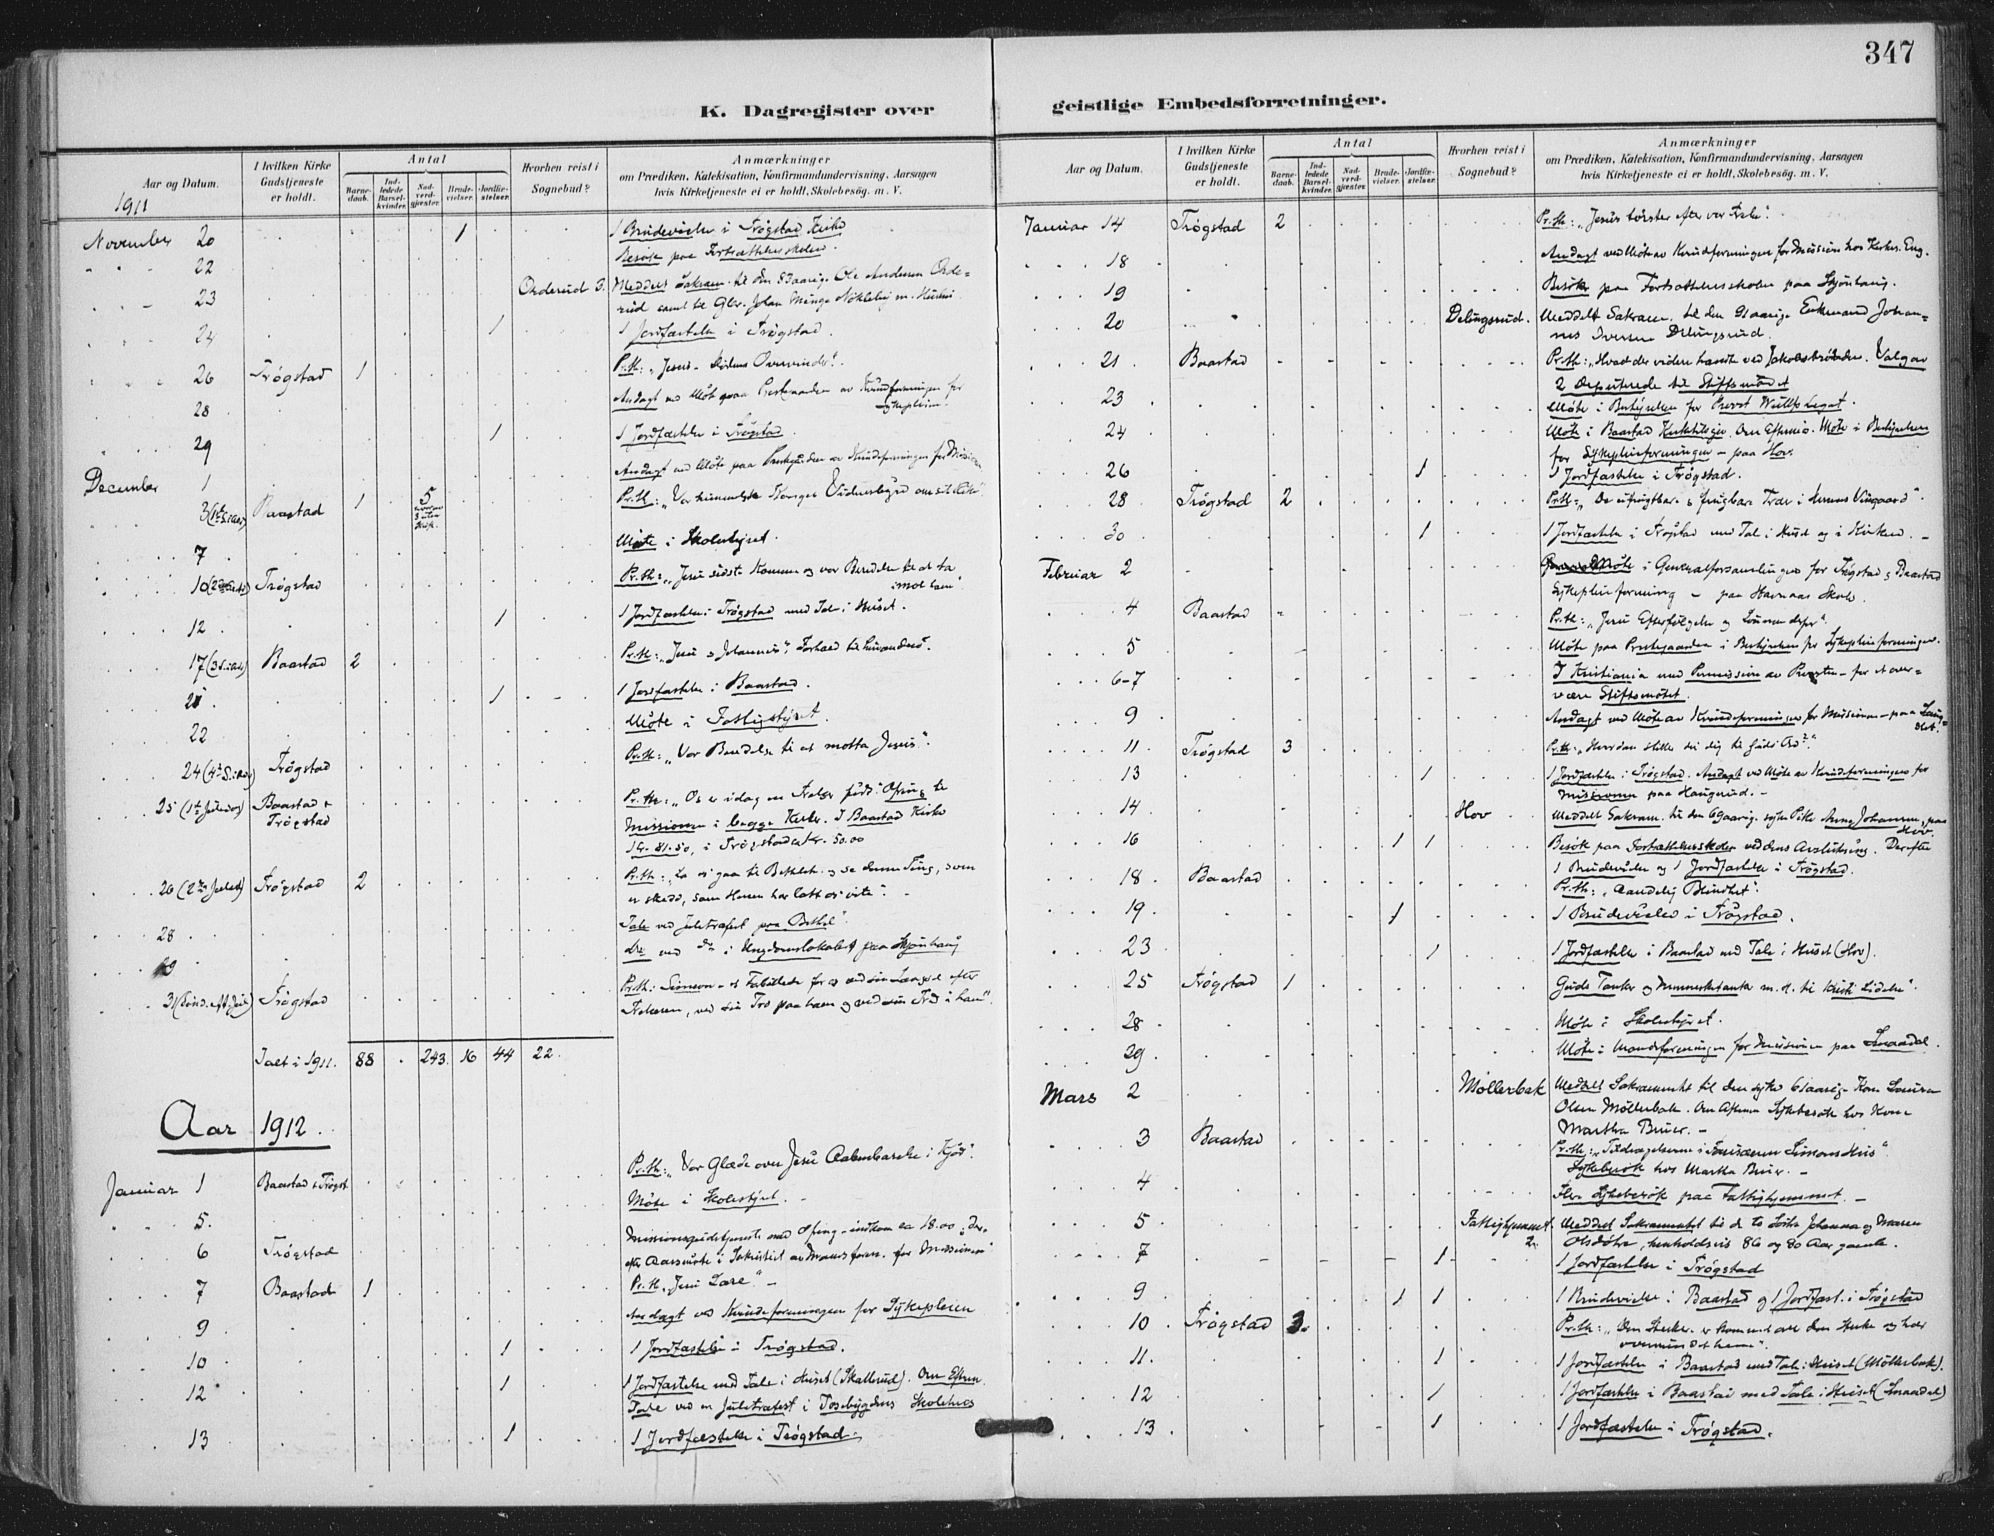 347
K. Dagregister over geistlige Embedsforretninger.
Aar og Datum. I hvilken Kirke Gudstjeneste er holdt. Antal Barnedaab. Indledede Barselkvinder. Nadverdgjester. Brudevielser. Jordfæstelser. Hvorhen reist i Sognebud? Anmærkninger
om Prædiken, Katekisation, Konfirmandundervisning, Aarsagen
hvis Kirketjeneste ei er holdt, Skolebesøg. m. V.
1911
November 20 1 1 Brudevielse i Trøgstad Kirke
22 Besøk paa Fortsættelsesskolen.
23 Orderud Meddelt Sakram. til den 83aarige Ole Andersen Orde-
rud samt til Gbr. Johan Minge Nøkleby m. Hustru.
24 1 1 Jordfæstelse i Trøgstad.
26 Trøgstad 1 Pr. th.: „Jesus - Dødens Overvinder“.
28 Andagt ved Møte paa Prestgaarden av Kvindeforeningen for
Sykepleien.
29 1 1 Jordfæstelse i Trøgstad.
December 1 Andagt ved Møte paa Prestgaarden av Kvindeforeningen for Missionen
3 (1ste S. i Adv.) Baastad 1 5 Pr. th.: „Vor himmelske Konges Vidnesbyrd om sit Rike
7 Møte i Skolestyret.
10 Trøgstad Pr. th.: „Jesu sidste Komme og vor Beredelse til at ta
imot ham“.
12 1 1 Jordfæstelse i Trøgstad med Tale i Huset.
17 (3 S. i Adv.) Baastad 2 Pr. th.: „Jesu & Johannes' Forhold til hinanden“.
21 1 1 Jordfæstelse i Baastad.
22 Møte i Fattigstyret.
24 (4de S. i Adv.) Trøgstad Pr. th.: „Vor Beredelse til at motta Jesus“.
25 (1ste Juledag) Baastad + Trøgstad Pr. th.: „Os er idag en Frelser født“. Ofring til
Missionen i begge Kirker. I Baastad Kirke
Kr. 81.50, i Trøgstad ca. Kr. 50.00
26 (2den Juled.) Trøgstad 2 Pr. th.: „La os gaa til Betlehem og se denne Ting, som
er skedd, som Herren har latt os vite“. -
28 Tale ved Juletræfest paa Bethel
29 do ved do i Ungdomslokalet paa Skjønhaug
31 (Sønd. eft. Jul) Trøgstad Pr. th.: Simeon - et Forbillede for os ved sin Længsel efter
Frelseren, ved sin Tro paa ham og ved sin Fred i ham“.
Ialt i 1911. 88 . 243. 16 44 22.
Aar 1912.
Januar 1 Baastad & Trøgst. Pr. th.: „Vor Glæde over Jesu Aabenbarelse i Kjød“.
5. Møte i Skolestyret. -
6 Trøgstad Missionsgudstjeneste med Ofring - indkom ca 18.00; der-
efter Aarsmøte i Sakristiet av Mandsforen. for Missionen
7 Baastad 1 Pr. th. „Jesu Lære“. -
9 Andagt ved Kvindeforeningen for Sykepleien
10 1 1 Jordfæstelse i Trøgstad.
12 1 1 Jordfæstelse med Tale i Huset (Skallerud). Om Eftm.
Tale ved en Juletræfest i Tosebygdens Skolehus
13 1 1 Jordfæstelse i Trøgstad.
Aar og Datum. I hvilken Kirke Gudstjeneste er holdt. Antal Barnedaab. Indledede Barselkvinder. Nadverdgjester. Brudevielser. Jordfæstelser. Hvorhen reist i Sognebud? Anmærkninger
om Prædiken, Katekisation, Konfirmandundervisning, Aarsagen
hvis Kirketjeneste ei er holdt, Skolebesøg. m. V.
Januar 14 Trøgstad 2 Pr. th.: „Jesus tørster efter vor Frelse“.
18 Andagt ved Møte av Kvindeforeningen for Missionen hos Eng.
19 Besøk paa Fortsættelsesskolen paa Skjønhaug.
20 Delingsrud. Meddelt Sakram. til den 91aarige Enkemand Johan-
nes Iversen Delingsrud
21 Baastad Pr. th.: „Hvad der videre hændte ved Jakobsbrønden. Valg av
2 Deputerede til Stiftsmøtet
23 Møte i Bestyrelsen for Provst Wulfs Legat.
24 Møte i Baastad Kirketilsyn. Om Eftermid. Møte i Bestyrelsen
for Sykepleieforeningen - paa Hov.
26 1 1 Jordfæstelse i Trøgstad.
28 Trøgstad 2 Pr. th.: „De ufrugtbare & frugtbare Trær i Herrens Vingaard“.
30 1 1 Jordfæstelse i Trøgstad med Tale i Huset og i Kirken. -
Februar 2 Møte i Generalforsamlingen for Trøgstad & Baastad
Sykepleieforening - paa Havnaas Skole.
4 Baastad Pr. th.: „Jesu Efterfølgelse og Lønnen derfor“.
5 Møte paa Prestgaarden i Bestyrelsen for Sykepleieforeningen.
6-7 I Kristiania med Permission av Provsten - for at over-
være Stiftsmøtet.
9 Andagt ved Møte av Kvindeforeningen for Missionen - paa
11 Trøgstad 3 Pr. th.: „Hvordan stiller du dig til Guds Ord?“.
13 1 1 Jordfæstelse i Trøgstad. Andagt ved Møte av Kvindeforeningen for
Missionen paa Haugerud. -
14 Hov Meddelt Sakram. til den 69aarig. syke Pike Anne Johansen, paa
Hov.
16 1 1 Besøk paa Fortsættelsesskolen ved dens Avslutning. Derefter
1 Brudevielse og 1 Jordfæstelse i Trøgstad.
18 Baastad Pr. th.: „Aandelig Blindhet“.
19 1 1 Brudevielse i Trøgstad.
23 1 1 Jordfæstelse i Baastad med Tale i Huset (Hov).
25 Trøgstad 1 Guds Tanker og Menneske tanker m. H. til Kristi Lidelse“.
28 Møte i Skolestyret.
29 Møte i Mandsforeningen for Missionen paa Snaadal.
Mars 2 Møllerbak Meddelt Sakramentet til den syke 61aarige Kone Laura
Olsen Møllerbak. Om Aftenen Sykebesøk hos Kone
Martha Bruer. -
3 Baastad Pr. th.: „Tildragelserne i Farisæeren Simons Hus“.
Sykebesøk hos Martha Bruer. -
4 Flere Sykebesøk paa Fattighjemmet. -
5 Fattighjemmet 2. Meddelt Sakramentet til de to Søstre Johanna og Maren
Olsdøtre, henholdsvis 86 og 80 Aar gamle.
7 1 1 Jordfæstelse i Trøgstad
9 1 1 1 Brudevielse i Baastad og 1 Jordfæst. i Trøgstad
10 Trøgstad 3. Pr. th.: „Den Sterkere er kommet over den sterke og har
overvundet ham“.
11. 1 1 Jordfæstelse i Baastad med Tale i Huset (Møllerbak).
12 1 1 Jordfæstelse i Baastad med Tale i Huset (Snaadal)
13 1 1 Jordfæstelse i Trøgstad.